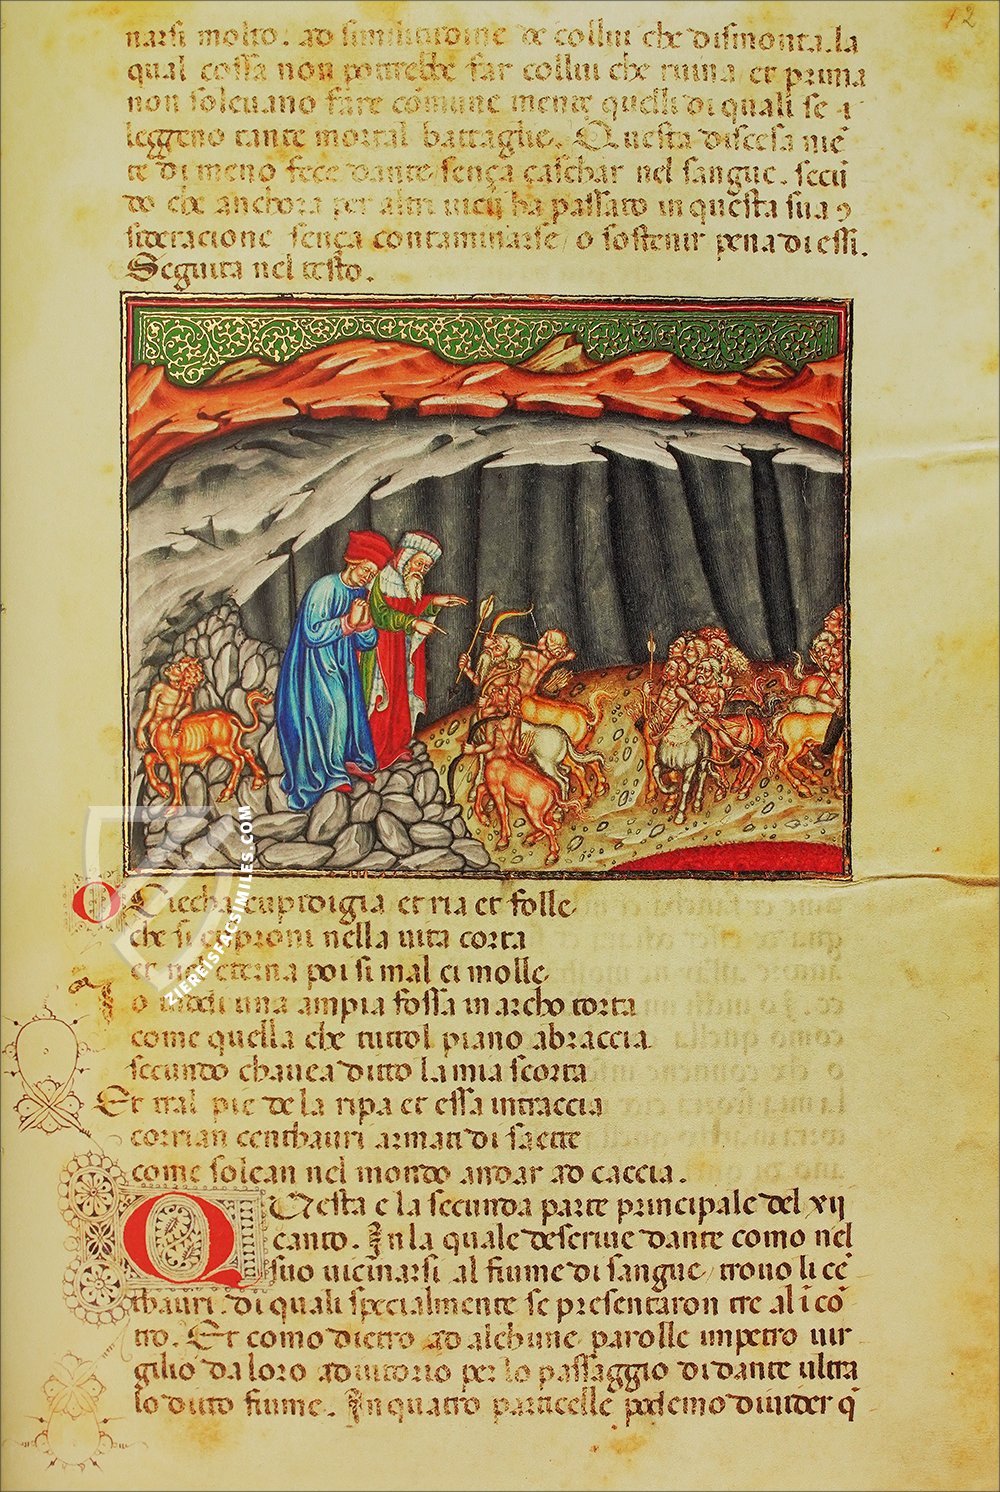 12
narsi molto. ad similitudine de collui che dismonta. la
qual cossa non potrebbe far collui che ruina et prima
non solevano fare cõmune mente quelli di quali se
leggeno tante mortal battaglie. Questa discesa niē
te di meno fece dante sença caschar nel sangue. secū
do che anchora per altri vicij ha passato in questa sua ↄ
sideracione sença contaminarse / o sostenir pena di essi.
Seguita nel testo.
O Ciecha cupidigia et ria et folle
che si ci sproni nella vita corta
et ne eterna poi si mal ci molle
Io viddi una ampia fossa in archo torta
come quella che tuttol piano abraccia
secundo chavea ditto la mia scorta
Et tral pie de la ripa et essa intraccia
corrian centhauri armati di saette
come solean nel mondo andar ad caccia.
Questa e la secunda parte principale del xij
canto. In la quale descrive dante como nel
suo vicinarsi al fiume di sangue / trovo li cē
thauri. di quali specialmente se presentaron tre al icō
tro. Et como dietro ad alchune parolle impetro vir
gilio da loro adiutorio per lo passaggio di dante ultra
lo dito fiume. In quatro particelle podemo divider q̄
ZIEREISFACSIMILES.COM